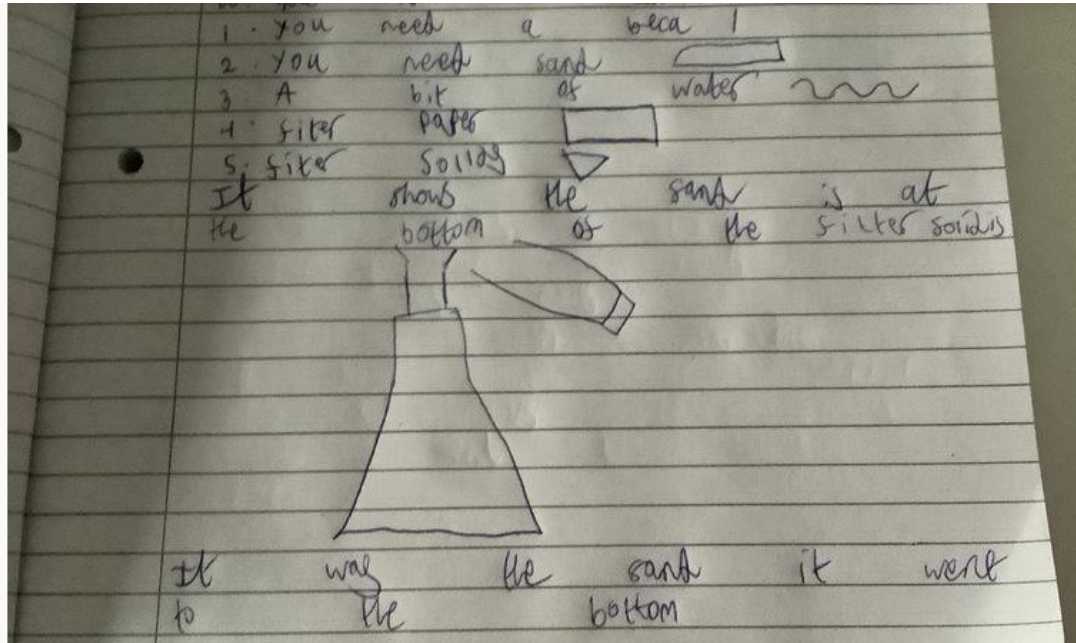 1. You need a beca 1
2. You need sand
3 A bit of water
4. fiter paper
5. fiter solids
It shows the sand is at
the bottom of the filter solids
It was the sand it went
to the bottom